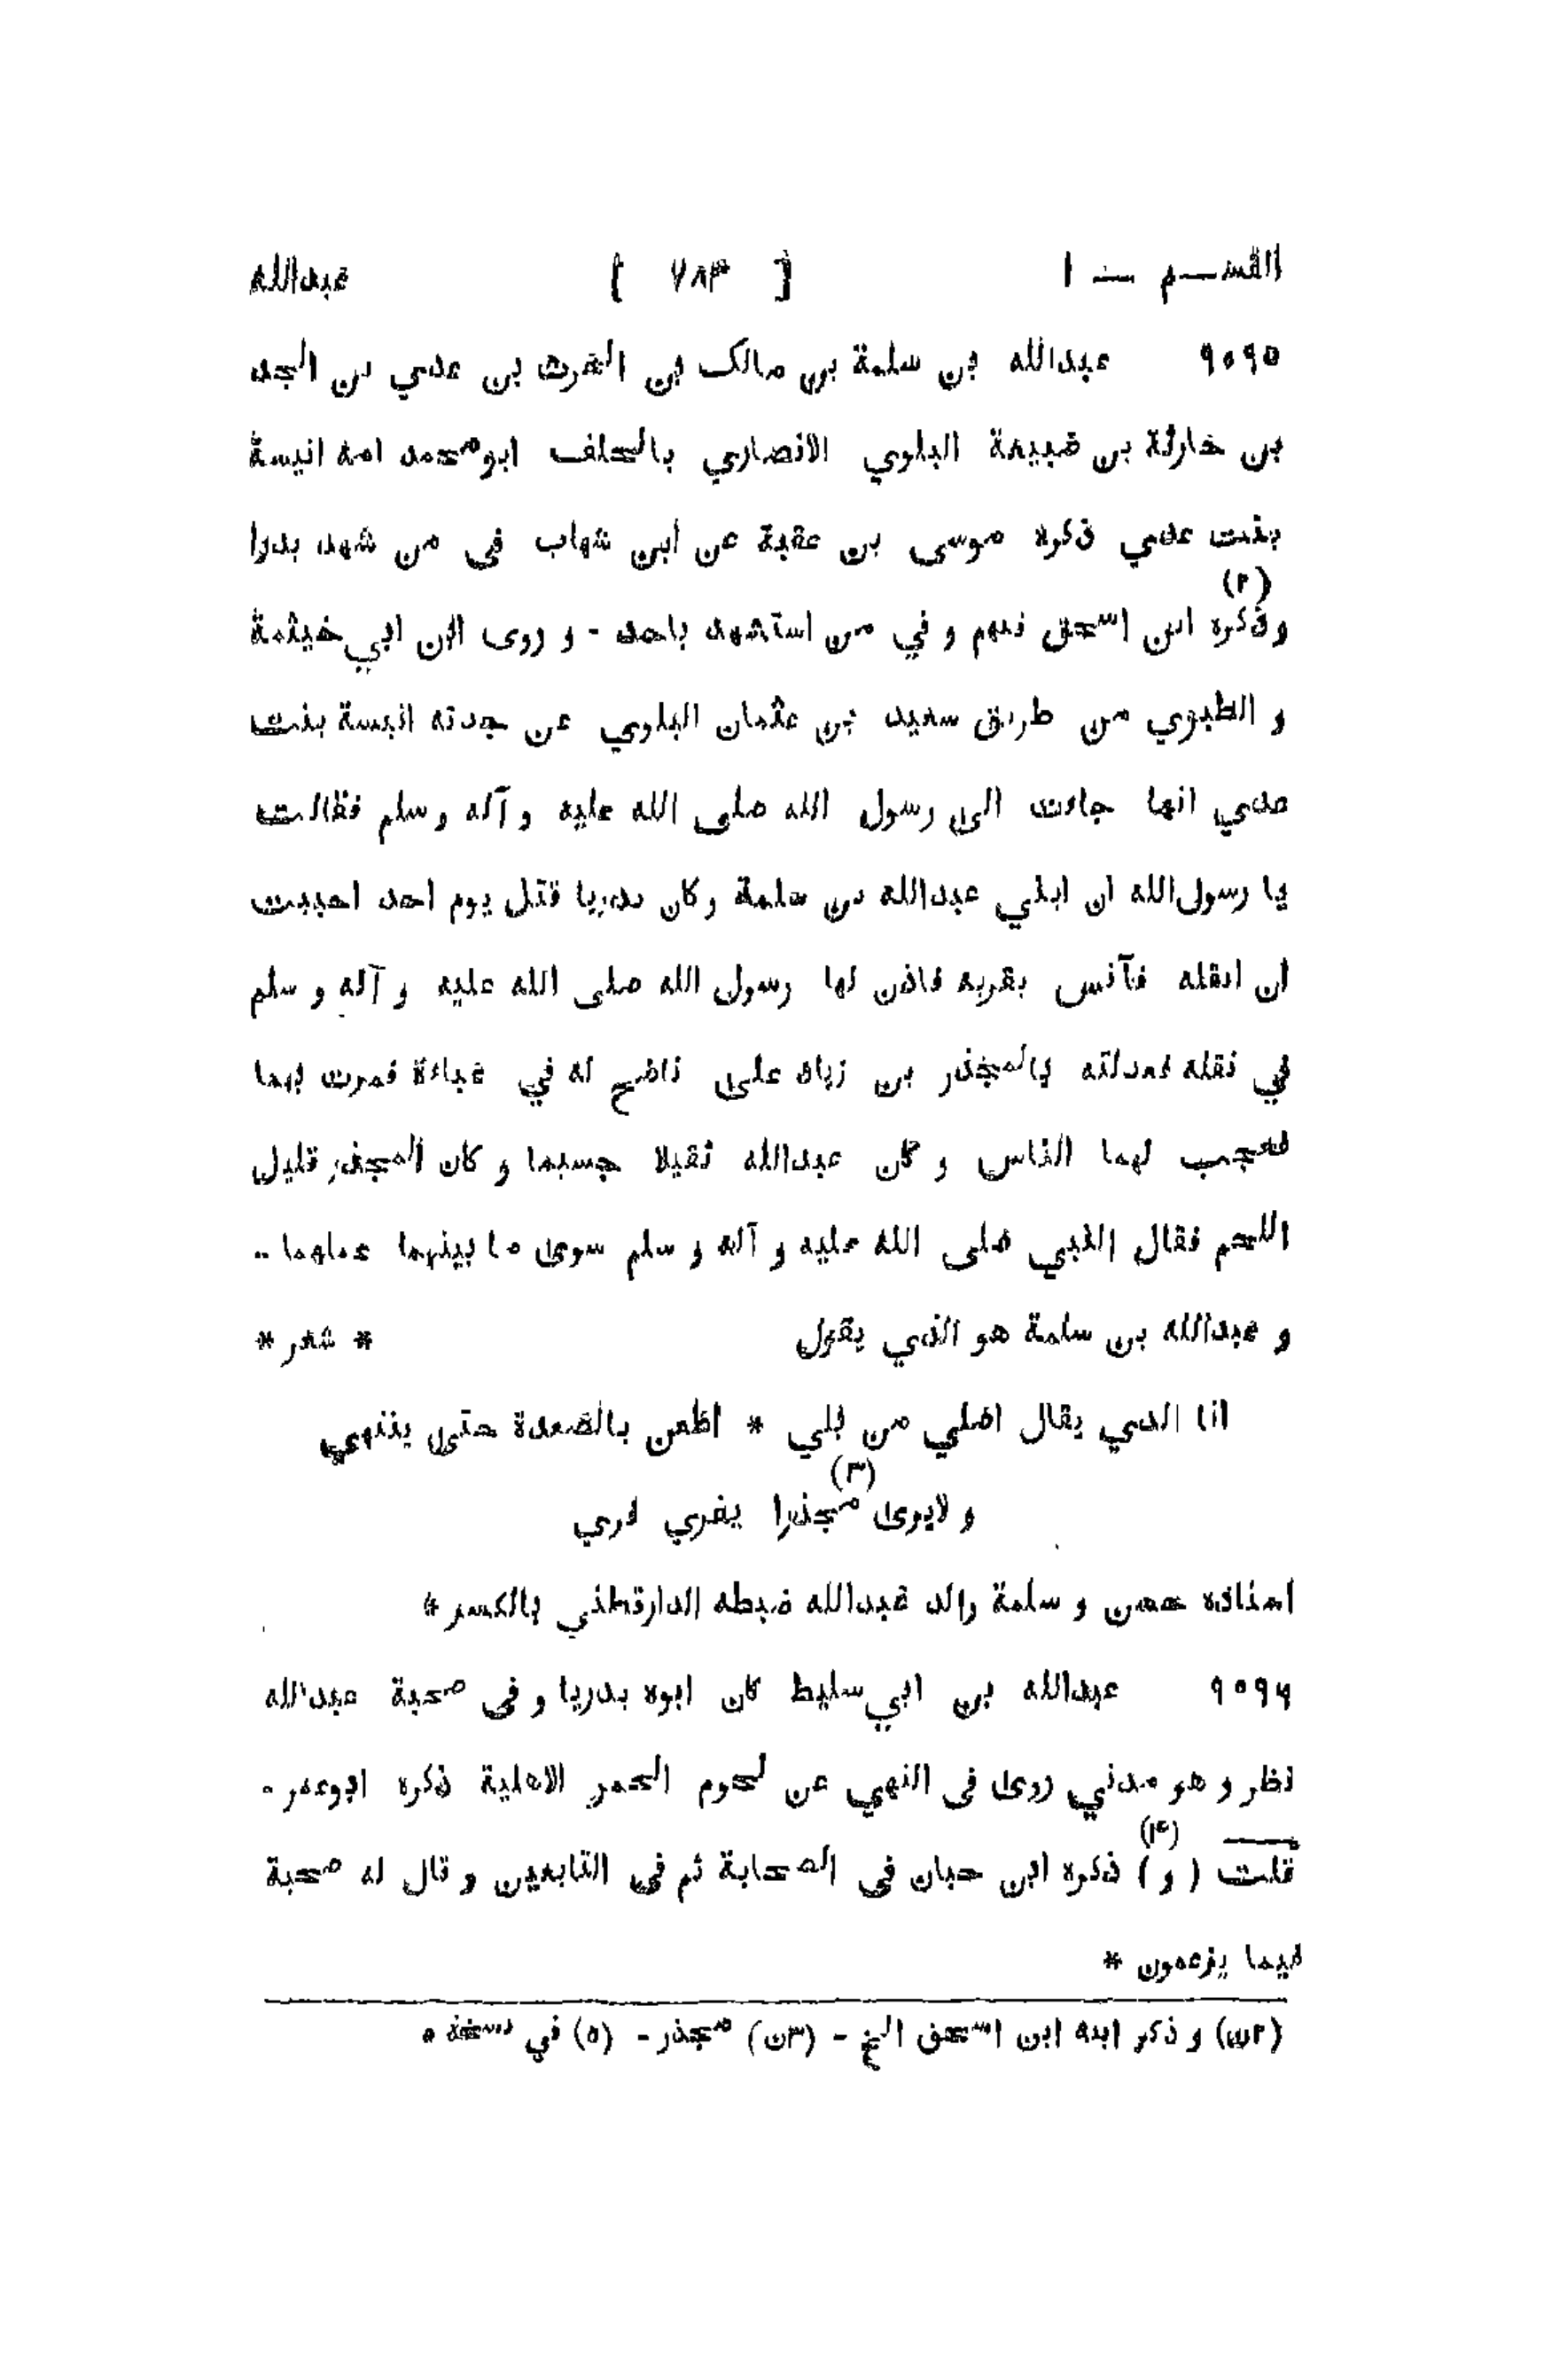 القســم — ١ [ ٧٨٣ ] عبدالله
٩٠٩٥ عبدالله بن سلمة بن مالك بن الحرث بن عدي بن الجد
بن حارثة بن ضبيعة البلوي الانصاري بالحلف ابو محمد امه انيسة
بنت عدي ذكره موسى بن عقبة عن ابن شهاب فى من شهد بدرا
(٢)
وذكره ابن اسحق فيهم و في من استشهد باحد - و روى ابن ابي خيثمة
و الطبري من طريق سعيد بن عثمان البلوي عن جدته انيسة بنت
عدي انها جاءت الى رسول الله صلى الله عليه و آله و سلم فقالت
يا رسول الله ان ابني عبدالله بن سلمة وكان بدريا قتل يوم احد احببت
ان انقله فآنس بقربه فاذن لها رسول الله صلى الله عليه و آله و سلم
في نقله فعدلته بالمجذر بن زياد على ناضح له في عباءة فمرت بهما
فعجب لهما الناس و كان عبدالله ثقيلا جسيما و كان المجذر قليل
اللحم فقال النبي صلى الله عليه و آله و سلم سوى ما بينهما عملهما -
و عبدالله بن سلمة هو الذي يقول * شعر *
انا الذي يقال اصلي من بلي * اطعن بالصعدة حتى ينثني
(٣)
و لايرى مجذرا يفري فري
اسناده حسن و سلمة والد عبدالله ضبطه الدارقطني بالكسر *
٩٠٩٦ عبدالله بن ابي سليط كان ابوه بدريا و فى صحبة عبدالله
نظر و هو مدني روى فى النهي عن لحوم الحمر الاهلية ذكره ابوعمر -
(٤)
قلت ( و ) ذكره ابن حبان فى الصحابة ثم فى التابعين و قال له صحبة
فيما يزعمون *
(٢س) و ذكر ابنه ابن اسحق الخ - (٣ن) مجذر - (٥) في نسخة ٥